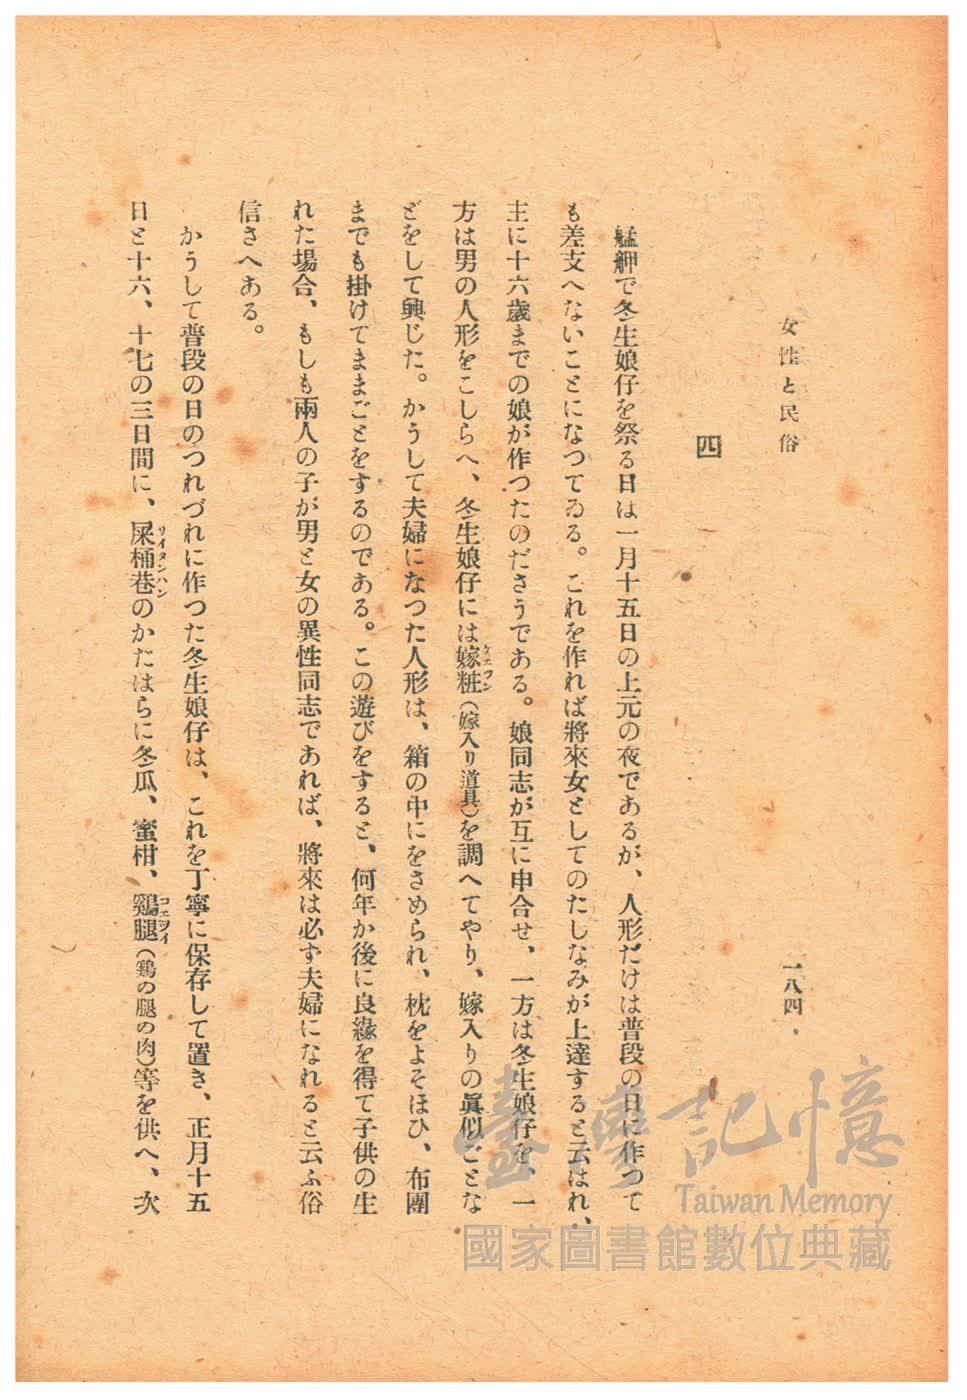 女性と民俗
一八四
四
艋舺で冬生娘仔を祭る日は一月十五日の上元の夜であるが、人形だけは普段の日に作つて
も差支へないことになつてゐる。これを作れば將來女としてのたしなみが上達すると云はれ、
主に十六歲までの娘が作つたのださうである。娘同志が互に申合せ、一方は冬生娘仔を、一
方は男の人形をこしらへ、冬生娘仔には嫁粧（嫁入り道具）を調へてやり、嫁入りの眞似ごとな
どをして興じた。かうして夫婦になつた人形は、箱の中にをさめられ、枕をよそほひ、布團
までも掛けてままごとをするのである。この遊びをすると、何年か後に良緣を得て子供の生
れた場合、もしも兩人の子が男と女の異性同志であれば、將來は必ず夫婦になれると云ふ俗
信さへある。
かうして普段の日のつれづれに作つた冬生娘仔は、これを丁寧に保存して置き、正月十五
日と十六、十七の三日間に、屎桶巷のかたはらに冬瓜、蜜柑、鷄腿（鷄の腿の肉）等を供へ、次
臺灣記憶
Taiwan Memory
國家圖書館數位典藏